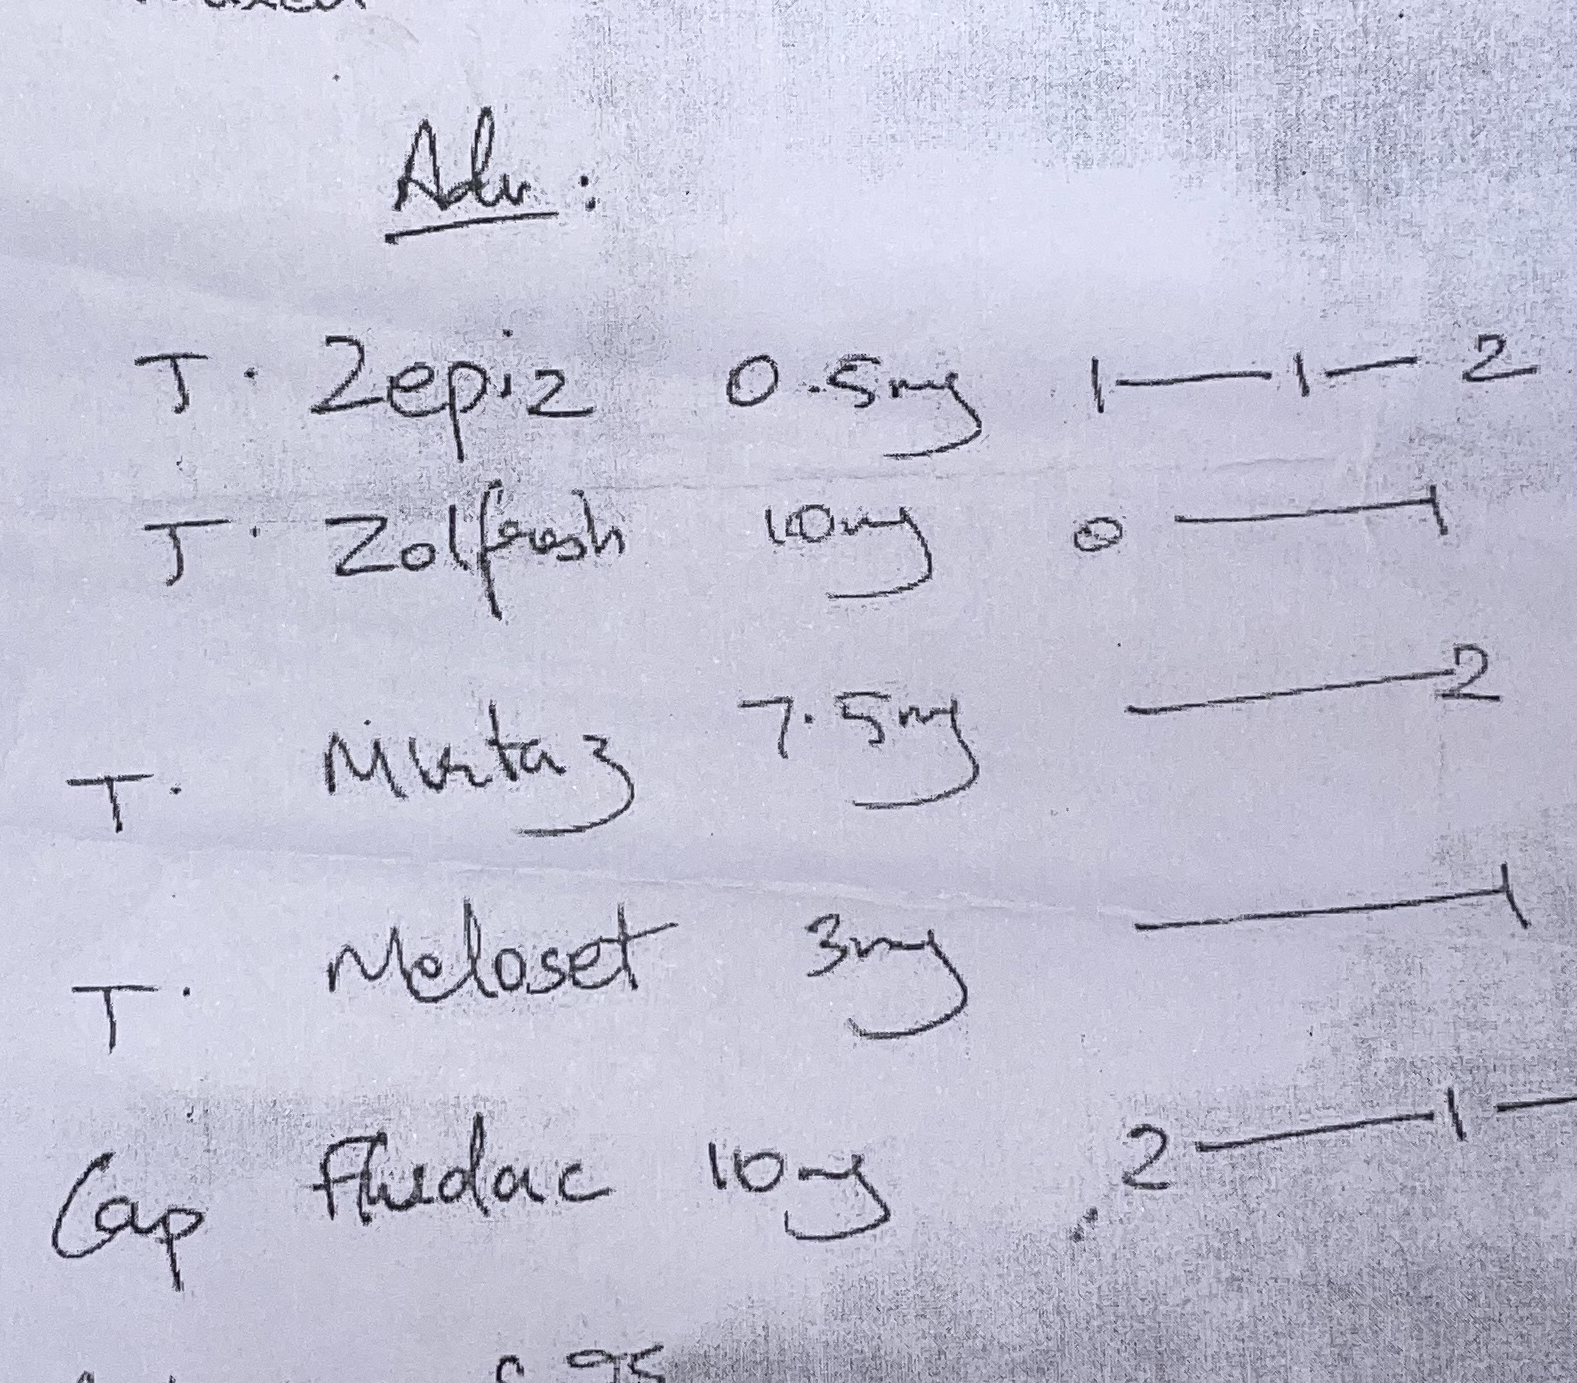 Adv :
T. Zepiz 0.5mg 1—1—2
T. Zolfresh 10mg 0—1
T. Mirtaz 7.5mg —2
T. Meloset 3mg —1
Cap Fludac 10mg 2—1—